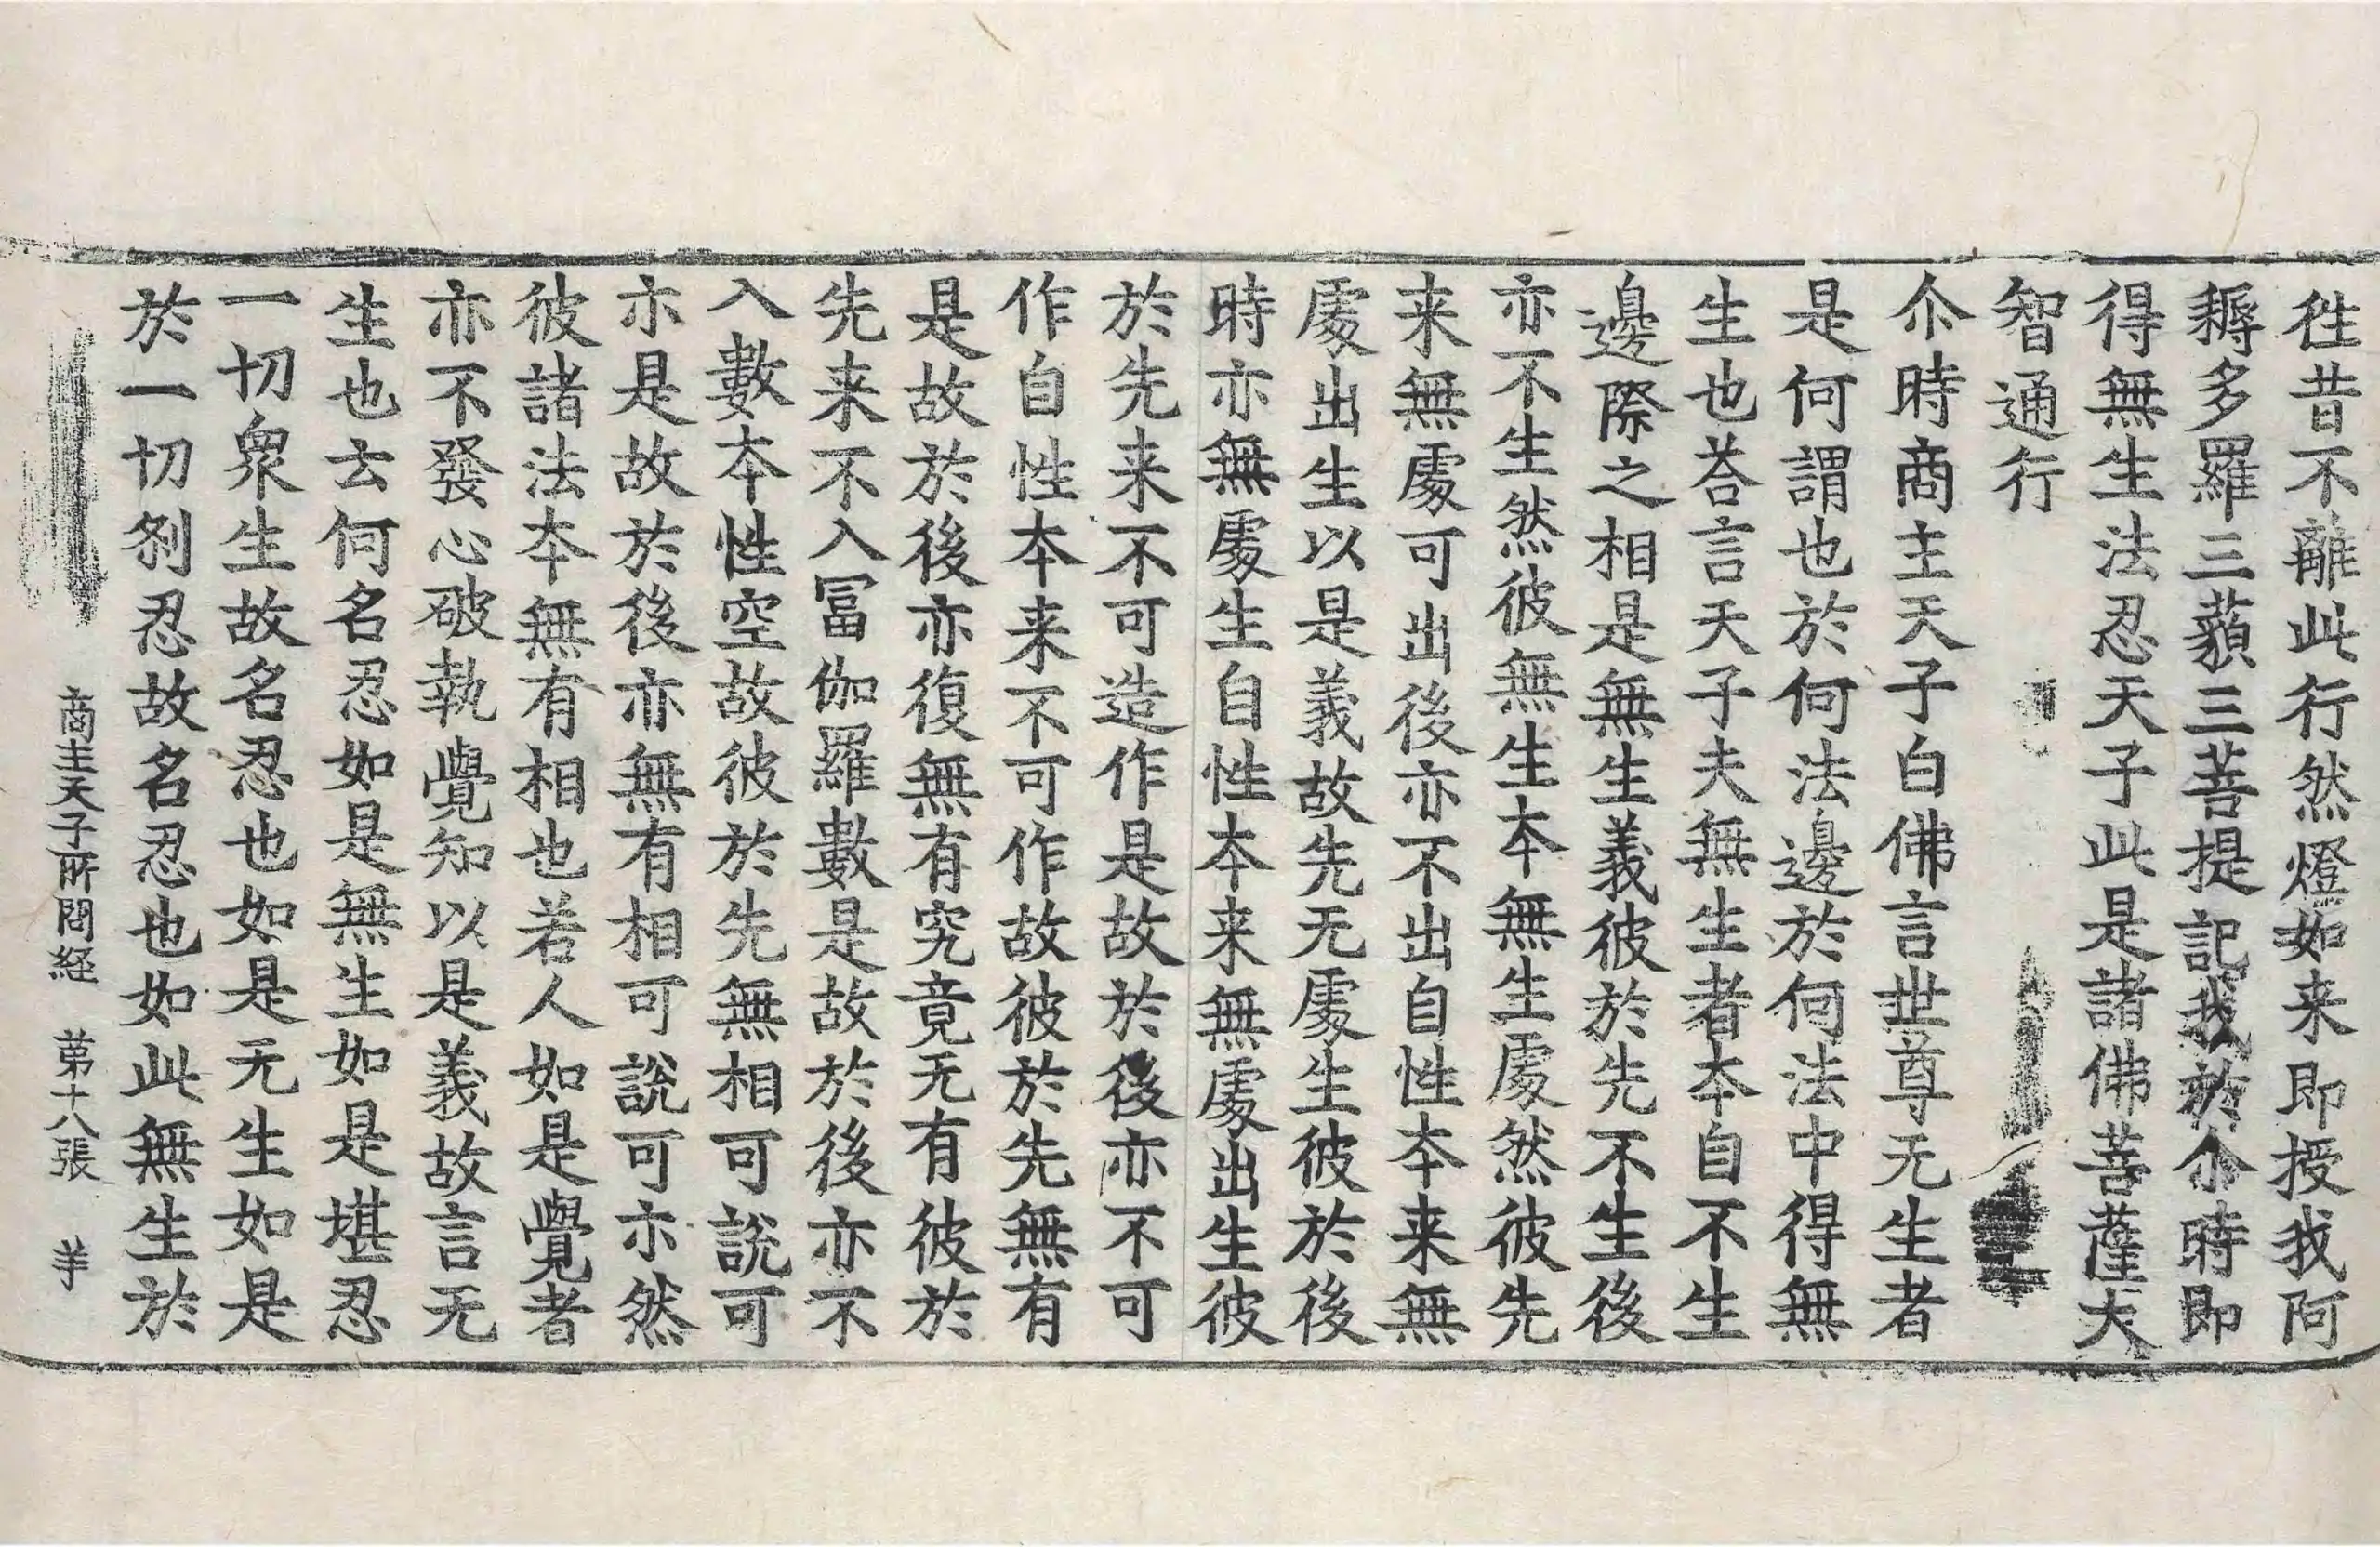 徃昔不離此行然燈如来即授我阿
耨多羅三藐三菩提記我於尒時即
得無生法忍天子此是諸佛菩薩大
智通行
尒時商主天子白佛言世尊无生者
是何謂也於何法邊於何法中得無
生也荅言天子夫無生者本自不生
邊際之相是無生義彼於先不生後
亦不生然彼無生本無生處然彼先
来無處可出後亦不出自性本来無
處出生以是義故先无處生彼於後
時亦無處生自性本来無處出生彼
於先来不可造作是故於後亦不可
作自性本来不可作故彼於先無有
是故於後亦復無有究竟无有彼於
先来不入冨伽羅數是故於後亦不
入數本性空故彼於先無相可說可
亦是故於後亦無有相可說可亦然
彼諸法本無有相也若人如是覺者
亦不發心破執覺知以是義故言无
生也云何名忍如是無生如是堪忍
一切衆生故名忍也如是无生如是
於一切刹忍故名忍也如此無生於
商主天子所問経　第十八張　羊